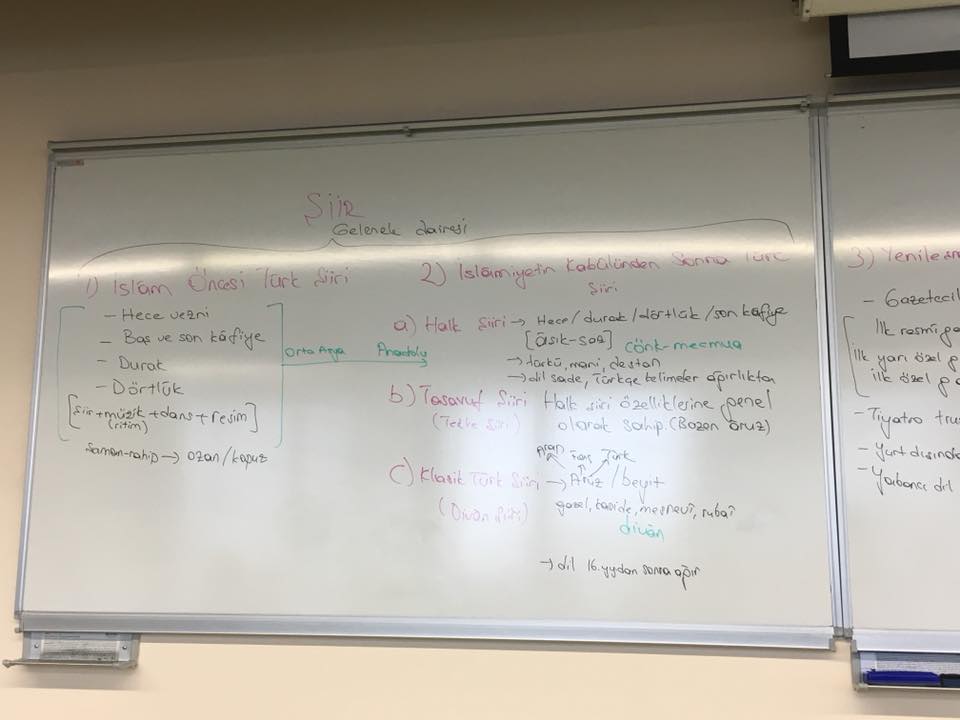 ŞİİR
Gelenek dairesi
1) İslam Öncesi Türk Şiiri
- Hece vezni
- Baş ve son kâfiye
- Durak
- Dörtlük
[şiir+müzik+dans+resim]
(ritim)
Şaman-rahip → ozan/kopuz
Orta Asya Anadolu
2) İslâmiyetin Kabulünden Sonra Türk
Şiiri
a) Halk Şiiri → Hece/durak/dörtlük/son kafiye
[Âşık-saz] cönk-mecmua
→ türkü, mani, destan
→ dil sade, Türkçe kelimeler ağırlıkta
b) Tasavvuf Şiiri Halk şiiri özelliklerine genel
(Tekke Şiiri) olarak sahip. (Bazen aruz)
Arap Fars Türk
c) Klasik Türk Şiiri → Aruz/beyit
(Divan Şiiri) gazel, kaside, mesnevî, rubaî
divân
→ dil 16.yydan sonra ağır
3) Yenileşm
- Gazetecil
İlk resmî ga
ilk yarı özel g
ilk özel ga
- Tiyatro
- Yurt dışında
- Yabancı dil